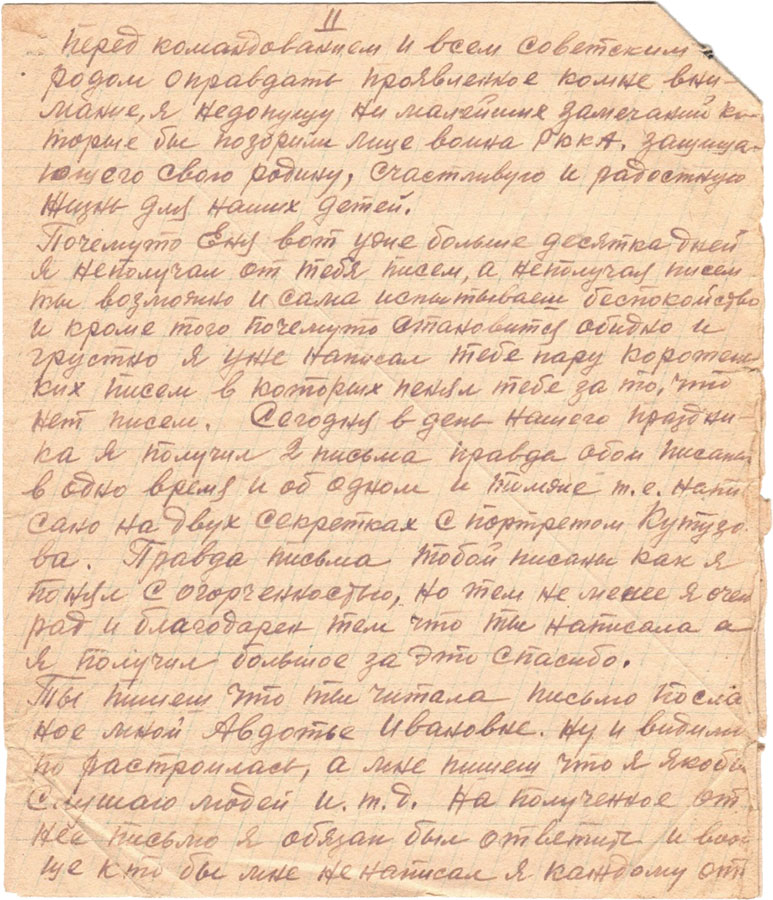 II
перед командованием и всем советским
родом оправдать проявленное комне вни-
мание, я недопущу ни малейших замечаний ко-
торые бы позорили лице воина РККА. защища-
ющего свою родину, счастливую и радостную
жизнь для наших детей.
Почемуто Еня вот уже больше десятка дней
Я неполучал от тебя писем, а неполучая писем
ты возможно и сама испытываеш беспокойство
и кроме того почемуто становится обидно и
грустно Я уже написал тебе пару коротень
ких писем в которых пенял тебе за то, что
нет писем. Сегодня в день нашего праздни-
ка Я получил 2 письма правда обои писаны
в одно время и об одном и т.е. напи
сано на двух секретках с портретом Кутузо-
ва. Правда письма тобой писаны как я
понял с огорченностью, но тем не менее я очен
рад и благодарен тем что ты написала а
Я получил большое за это спасибо.
Ты пишеш что ты читала письмо посла
ное мной Авдотье Ивановне. Ну и видимо
растроилась, а мне пишеш что я якобы
слушаю людей и.т.д. На полученное от
нее письмо я обязан был ответить и вооб
ще кто бы мне ненаписал я каждому от